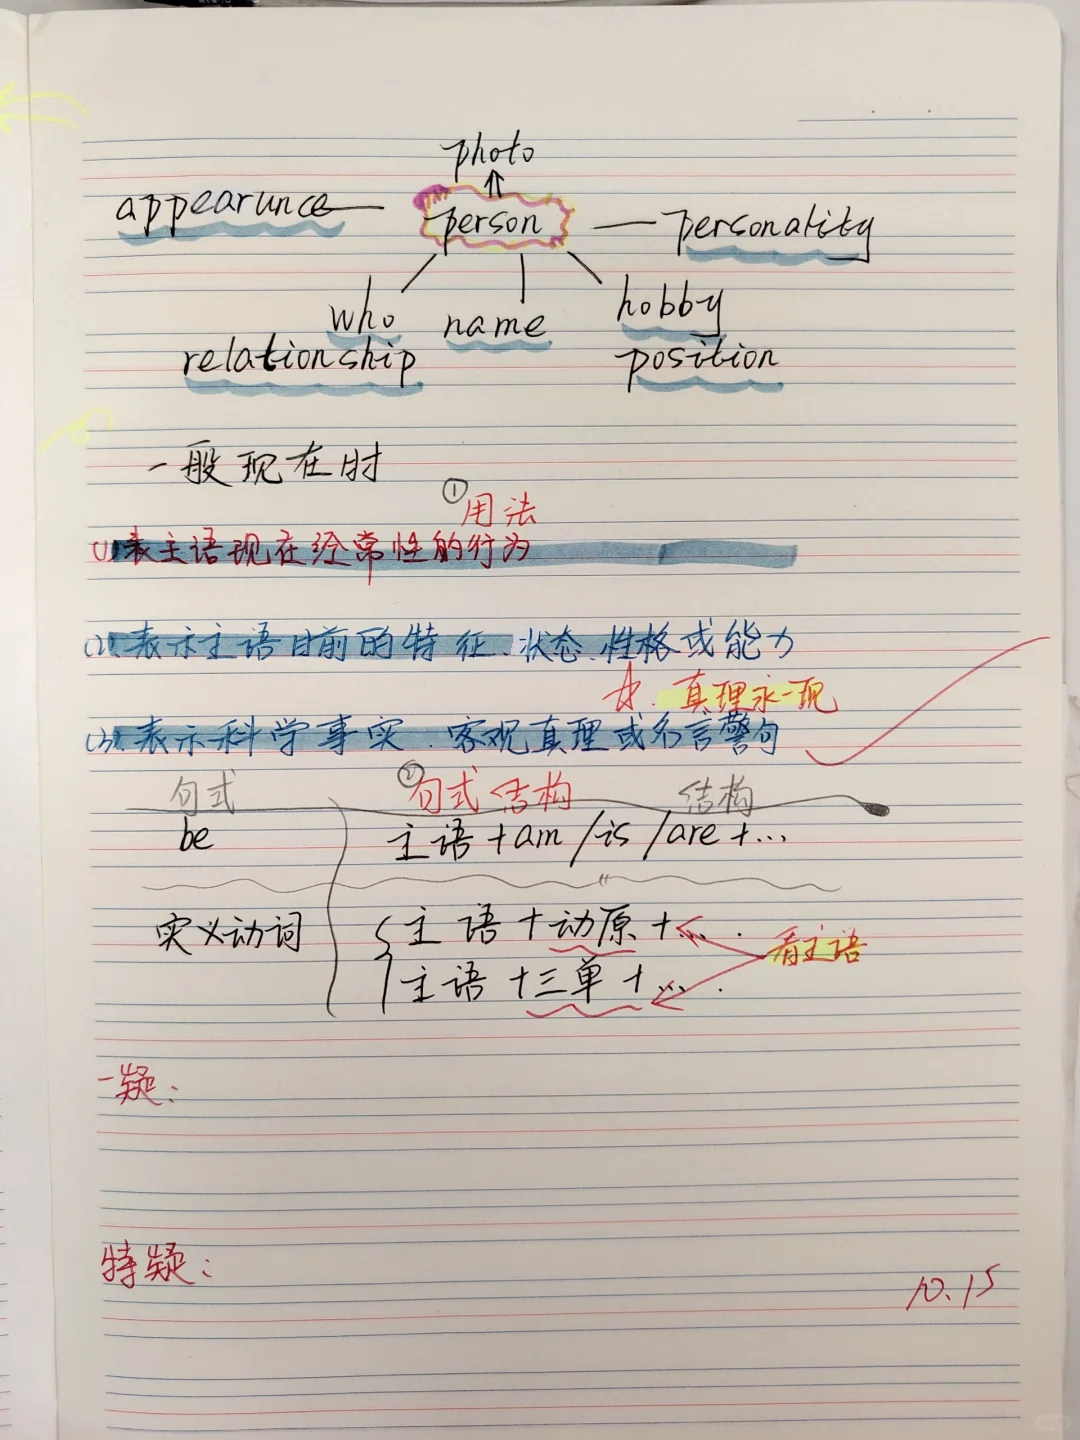 photo
appearunce person personality
who name hobby
relationship position
一般现在时
① 用法
(1)表主语现在经常性的行为
(2).表示主语目前的特征、状态、性格或能力
☆.真理永一现
(3).表示科学事实、客观真理或名言警句
句式 ②句式结构 结构
be 主语+am/is/are+...
实义动词 主语+动原+...
看主语
主语+三单+...
一疑:
特疑:
10.15